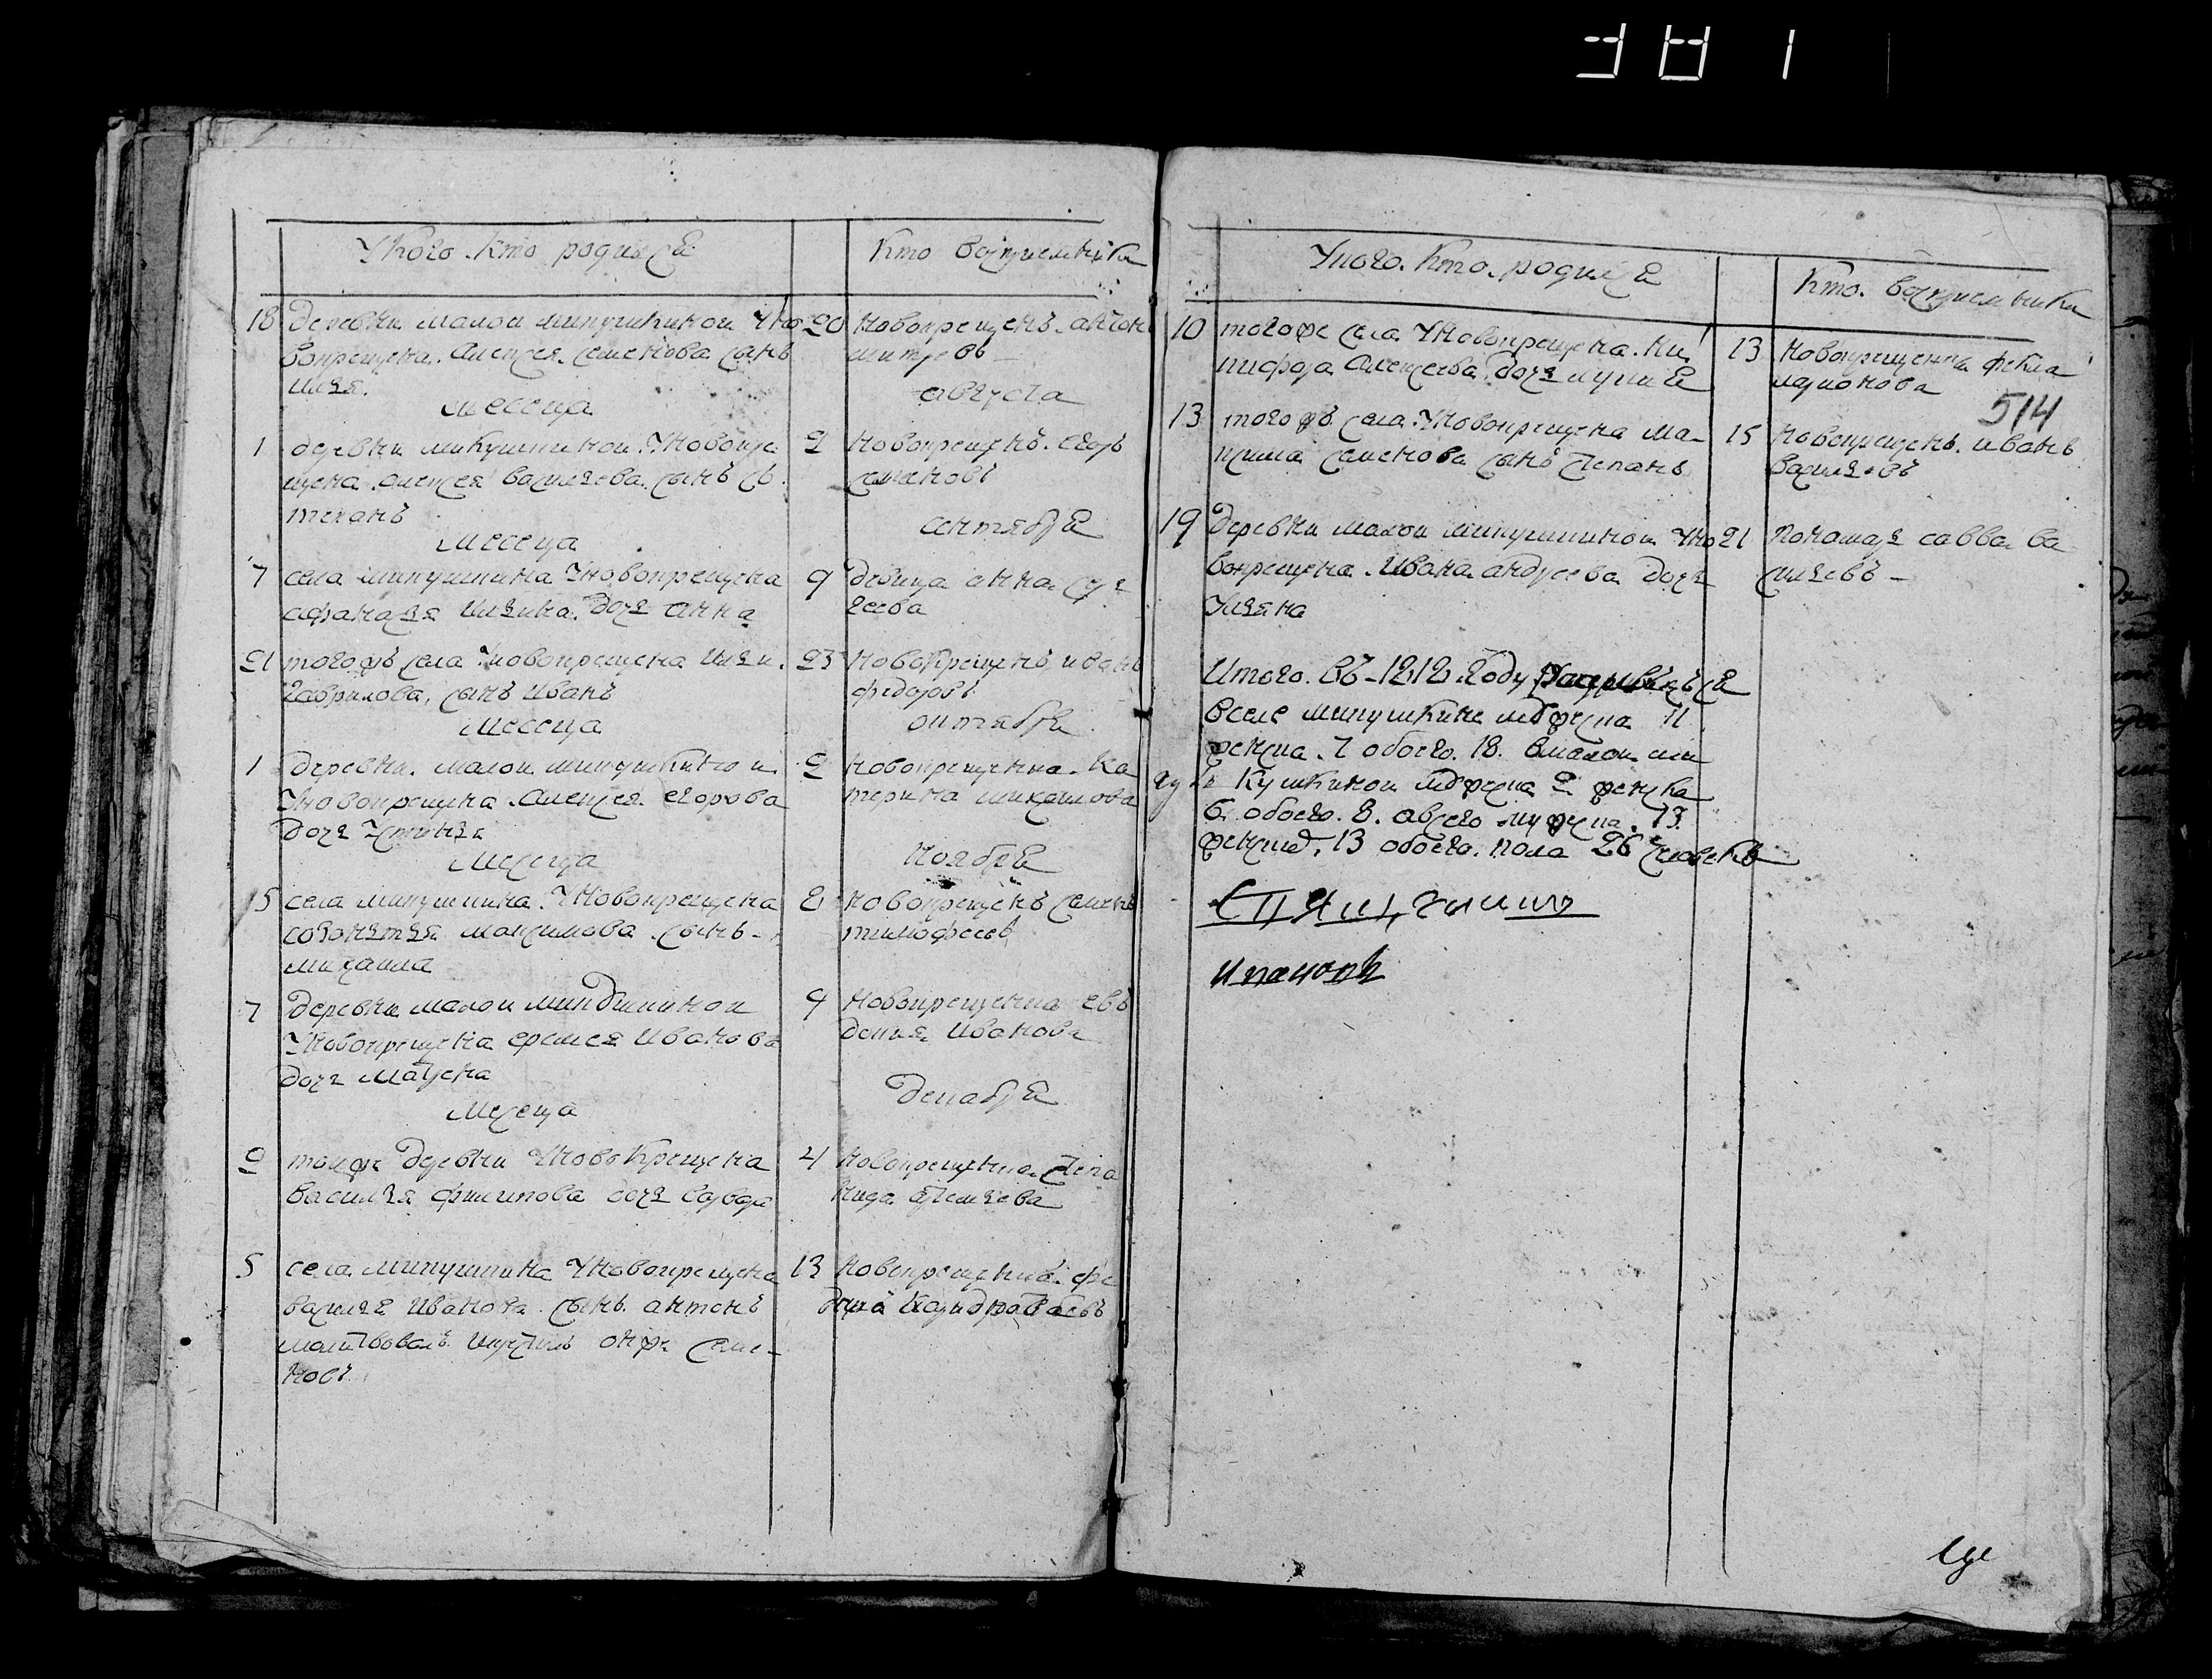 381
У кого кто родился
Кто восприемники
18 деревни малои микушкинои у но
вокрещена Алексея Семенова сынъ
Илья
20 новокрещенъ антонъ
митревъ
месеца августа
1 деревни микушкинои у новокре
щена алексея васильева сынъ с
тепанъ
2 новокрещенъ егоръ
семеновъ
месеца сентября
7 села микушкина у новокрещена
афанасья ильина дочь анна
9 девица анна сер
геева
21 тогожъ села у новокрещена ильи
гаврилова, сынъ иванъ
23 новокрещенъ иванъ
федоровъ
месеца октября
1 деревни малои микушкинои
у новокрещена алексея егорова
дочь устинья
2 новокрещенка ка
терина михаилова
месеца ноября
5 села микушкина у новокрещена
максимова сынъ
михаила
8 новокрещенъ семенъ
тимофеевъ
7 деревни малои микушкинои
у новокрещена еремея иванова
дочь матрена
9 новокрещенка евъ
докия иванова
месеца декабря
2 тоиже деревни у новокрещена
василья филипова дочь варвара
4 новокрещенка степа
нида
5 села микушкина у новокрещена
василья иванова сынъ антонъ
молитвовалъ и крестилъ онже семе-
новъ
13 новокрещенъ фе
У кого кто родился
Кто восприемники
10 тогоже села у новокрещена ни
кифора алексеева дочь лукия
13 новокрещенка фекла
ларионова
514
13 тогожъ села у новокрещена ма-
ксима семенова сынъ степанъ
15 новокрещенъ иванъ
васильевъ
19 деревни малои микушкинои у но
вокрещена ивана андреева дочь
ульяна
21 пономарь савва ва
сильевъ
Итого въ 1212 году родившихся
в селе микушкине мужеска 11
женска 7 обоего 18. в малои ми
кушкинои мужеска 2 женска
6 обоего 8. а всего мужеска 13
женска 13 обоего пола 26 человекъ